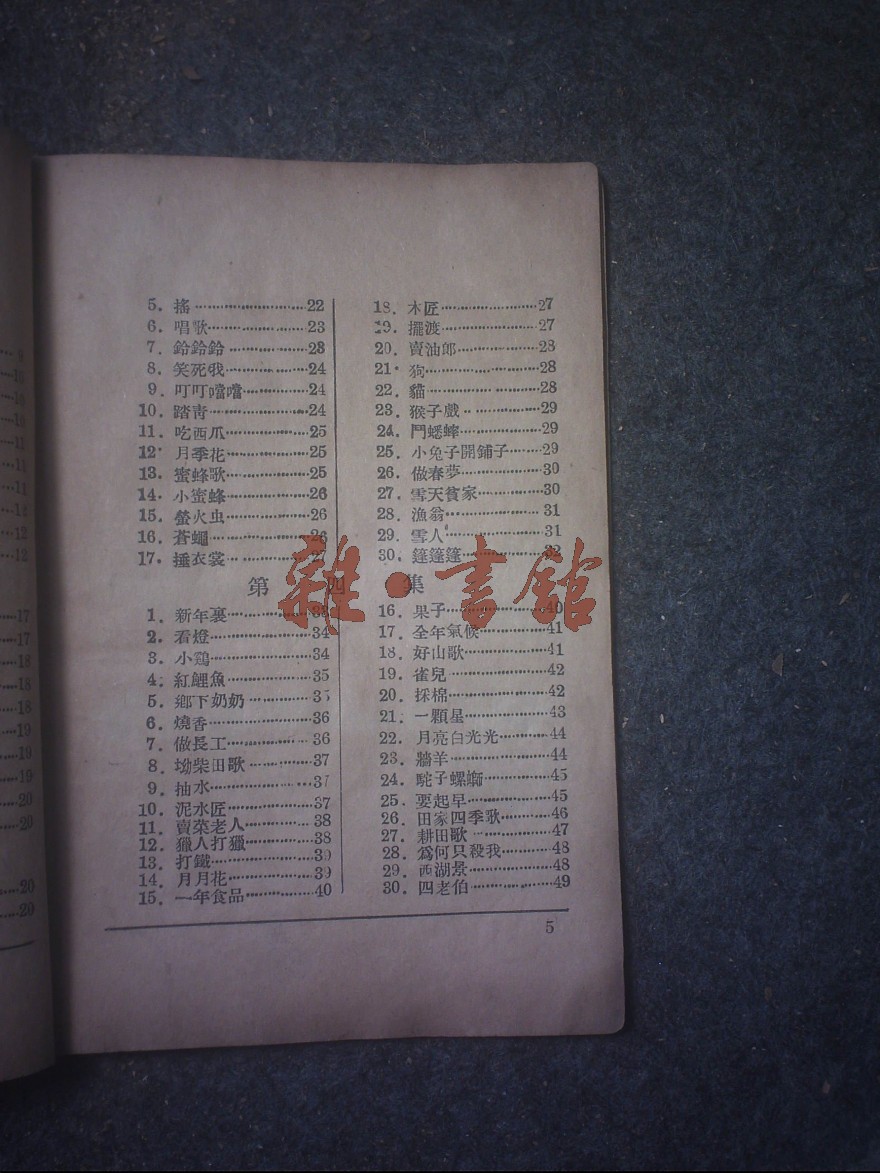 5. 搖……22
6. 唱歌……23
7. 鈴鈴鈴……23
8. 笑死我……24
9. 叮叮噹噹……24
10. 踏靑……24
11. 吃西瓜……25
12. 月季花……25
13. 蜜蜂歌……25
14. 小蜜蜂……26
15. 螢火虫……26
16. 蒼蠅……26
17. 捶衣裳……
18. 木匠……27
19. 擺渡……27
20. 賣油郎……28
21. 狗……28
22. 貓……28
23. 猴子戲……29
24. 鬥蟋蟀……29
25. 小兔子開鋪子……29
26. 做春夢……30
27. 雪天貧家……30
28. 漁翁……31
29. 雪人……31
30. 篷篷篷……32
第四集
1. 新年裏……33
2. 看燈……34
3. 小鷄……34
4. 紅鯉魚……35
5. 鄉下奶奶……35
6. 燒香……36
7. 做長工……36
8. 坳柴田歌……37
9. 抽水……37
10. 泥水匠……37
11. 賣菜老人……38
12. 獵人打獵……38
13. 打鐵……39
14. 月月花……39
15. 一年食品……40
16. 果子……40
17. 全年氣候……41
18. 好山歌……41
19. 雀兒……42
20. 採棉……42
21. 一顆星……43
22. 月亮白光光……44
23. 牆羊……44
24. 駝子螺螄……45
25. 要起早……45
26. 田家四季歌……46
27. 耕田歌……47
28. 爲何只殺我……48
29. 西湖景……48
30. 四老伯……49
5
雜·書館
9
10
10
10
11
11
11
12
12
17
17
18
18
18
19
19
19
20
20
20
20